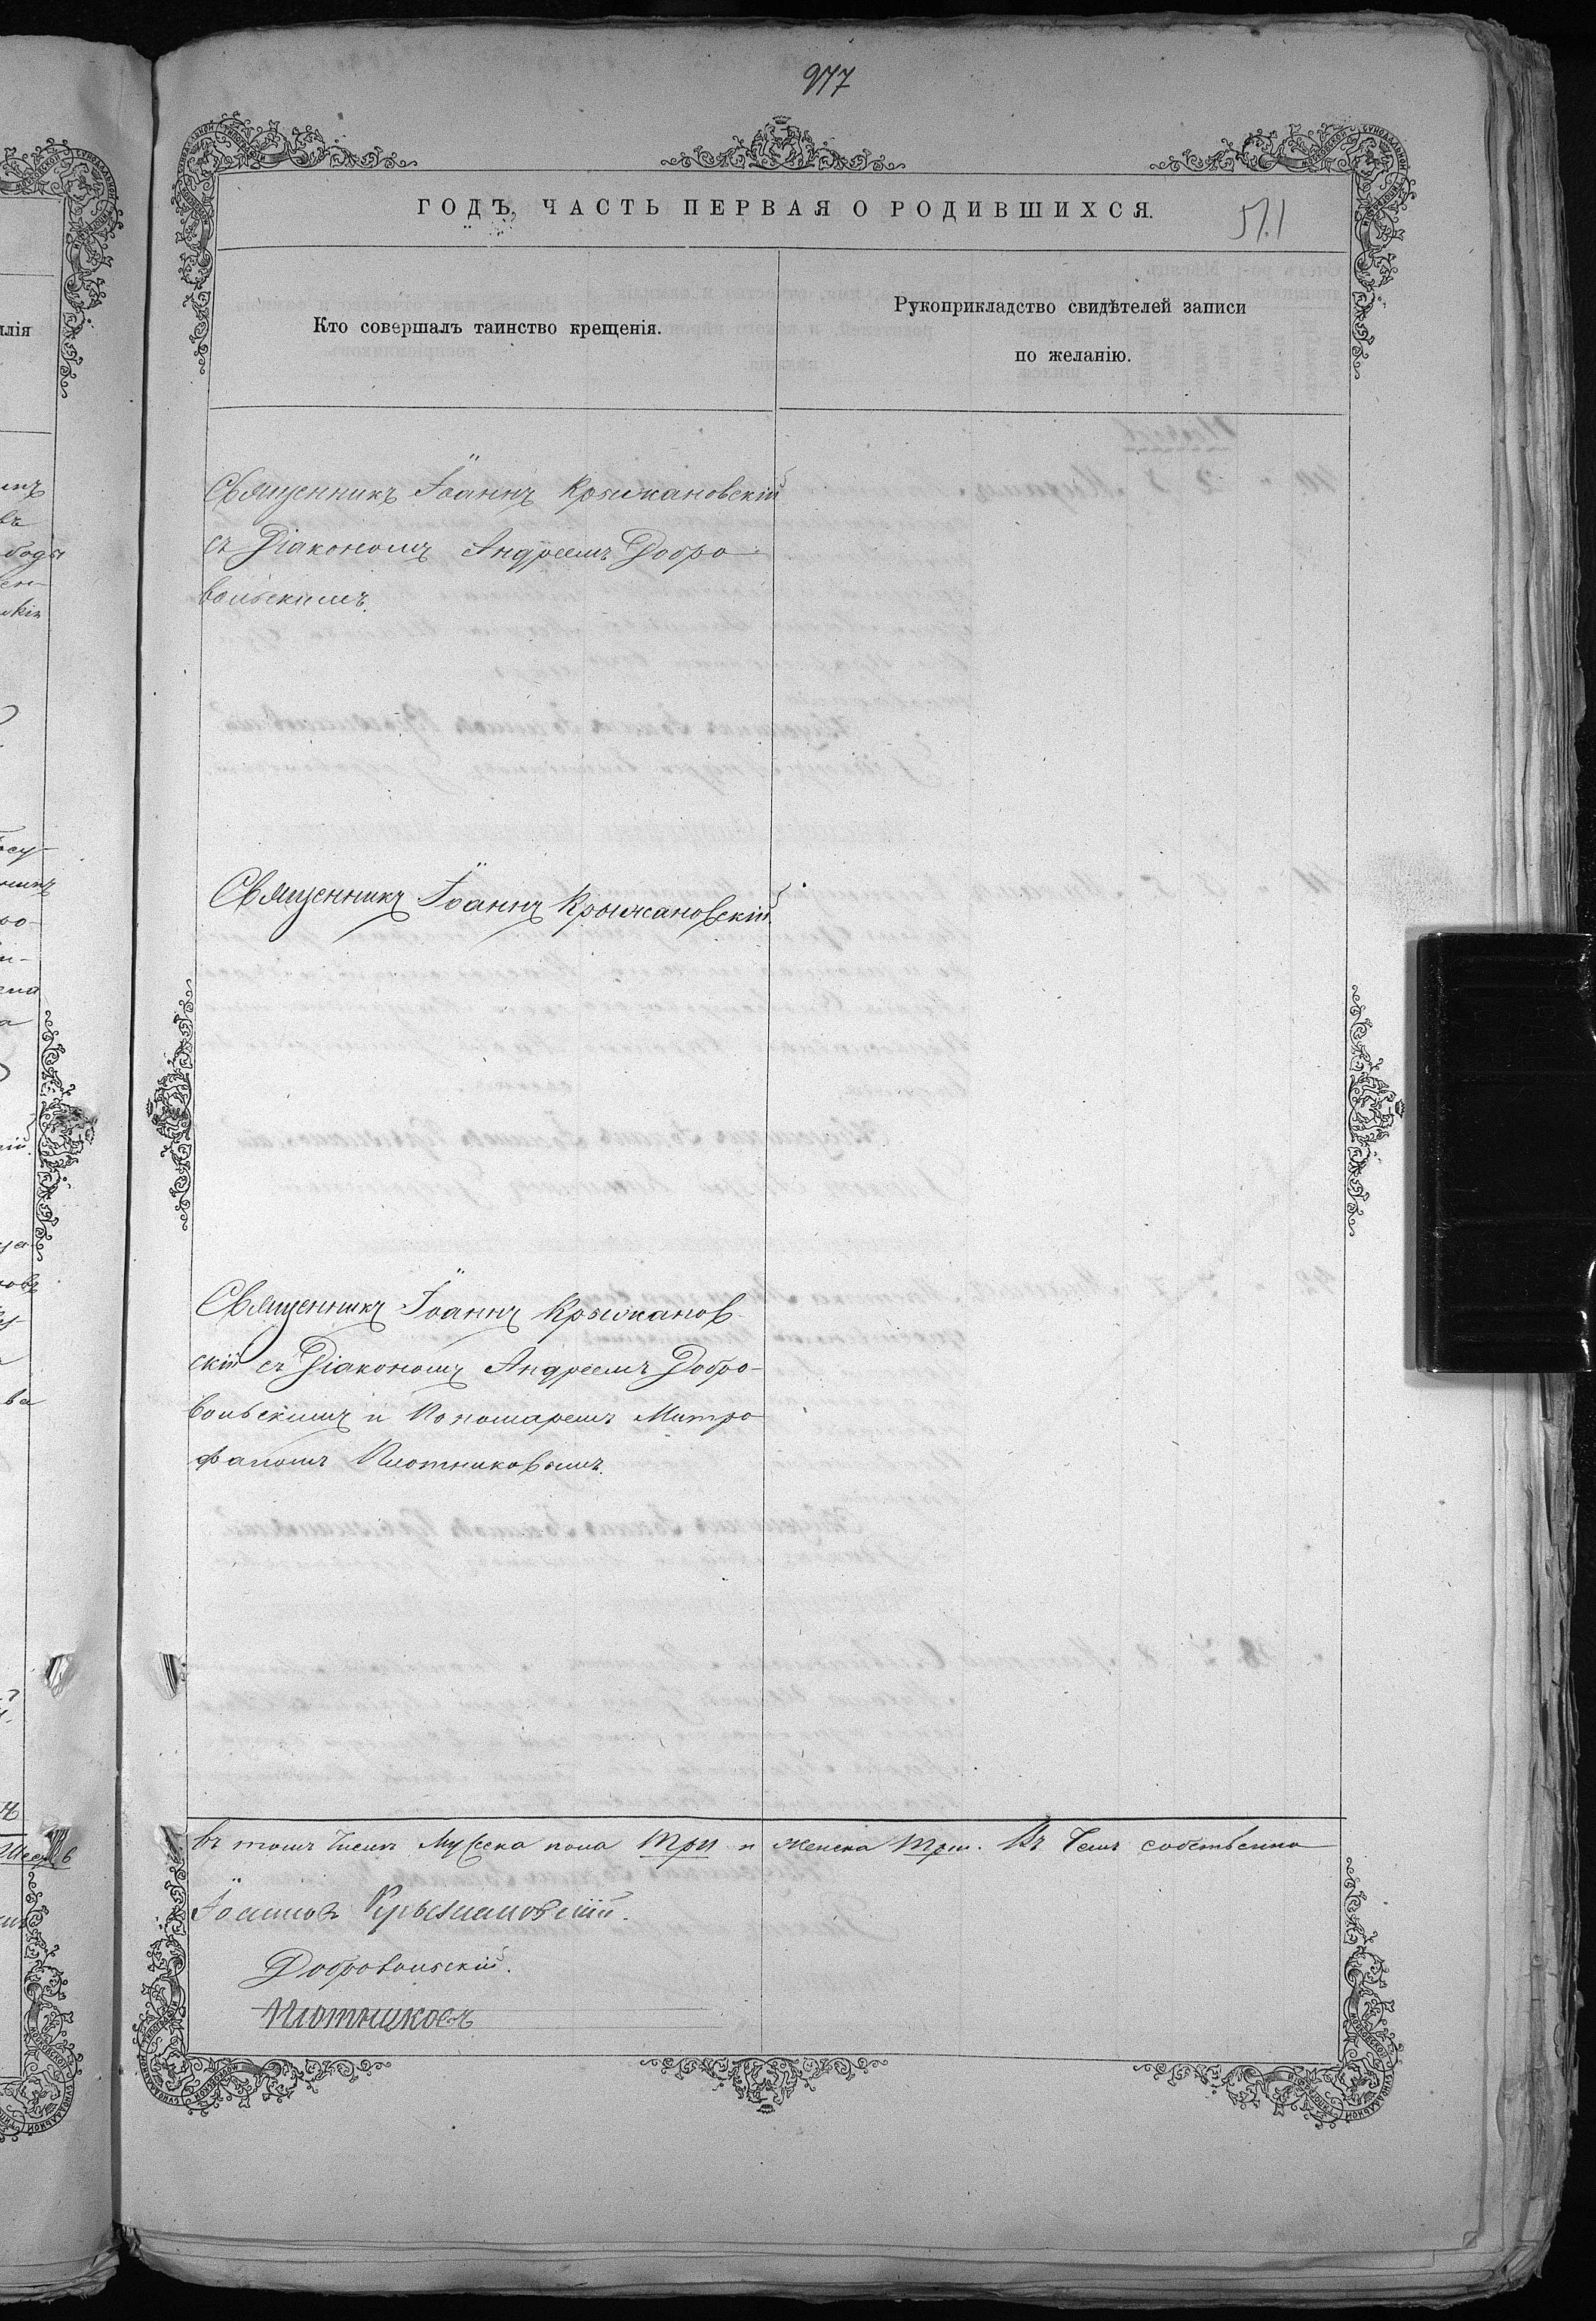 977
ГОДЪ, ЧАСТЬ ПЕРВАЯ О РОДИВШИХСЯ.
Кто совершалъ таинство крещенія.
Рукоприкладство свидѣтелей записи
по желанію.
Священникъ Іоаннъ Крыжановскій
съ Діакономъ Андреемъ Добро-
вольскимъ.
Священникъ Іоаннъ Крыжановскій.
Священникъ Іоаннъ Крыжанов-
скій съ Діакономъ Андреемъ Добро-
вольскимъ и Пономаремъ Митро-
фаномъ Плотниковымъ.
въ томъ числѣ Мужеска пола три и женска три. Въ чемъ собственно
Іоанновъ Крыжановскій.
Добровольскій.
Плотниковъ